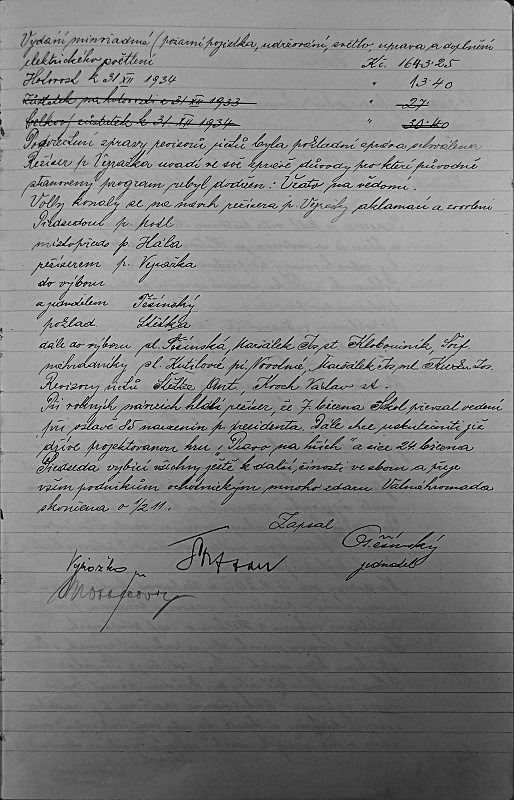 Vydání mimořádné (požarní pojistka, udržování, světlo, uprava a doplnění
elektrického světlení Kč. 1643·25
Hotovost k 31 XII 1934 " 13·40
Zůstatek na hotovosti k 31 XII 1933 " 27
Celkový zůstatek k 31 XII 1934 " 30·40
Po přečtení zprávy revisorů účtů byla pokladní zpráva schválena
Režiser p Vyražka uvadí ve své zprávě důvody, pro které původně
stanovený program nebyl dodržen: Vzato na vědomí.
Volby konaly se na návrh režisera p. Vyražky aklamací a zvoleni
Předsedou p.
místopředs p. Hála
režiserem p. Vyražka
do výboru
a jednatelem Těšinský
poklad Stětka
dále do výboru sl. Těšinská, Maršálek Jos. st. Kloboučník,
náhradníky sl. Kutilové pí, Novotná, Maršálek Jos. ml.
Revisory účtů Stětka Ant, Kroch Václav st.
Při volných návrzích hlásí režiser, že 7. března Sokol převzal vedení
při oslavě 85 narozenin p. presidenta. Dále chce uskutečniti již
dříve projektovanou hru „Pravo na hřích" a sice 24. března
Předseda vybízí všechny ještě k další činosti ve sboru a přeje
všem podnikům ochotnickým mnoho zdaru. Valná hromada
skončena o 1/2 11.
Zapsal
Těšínský
jednatel
Vyražka